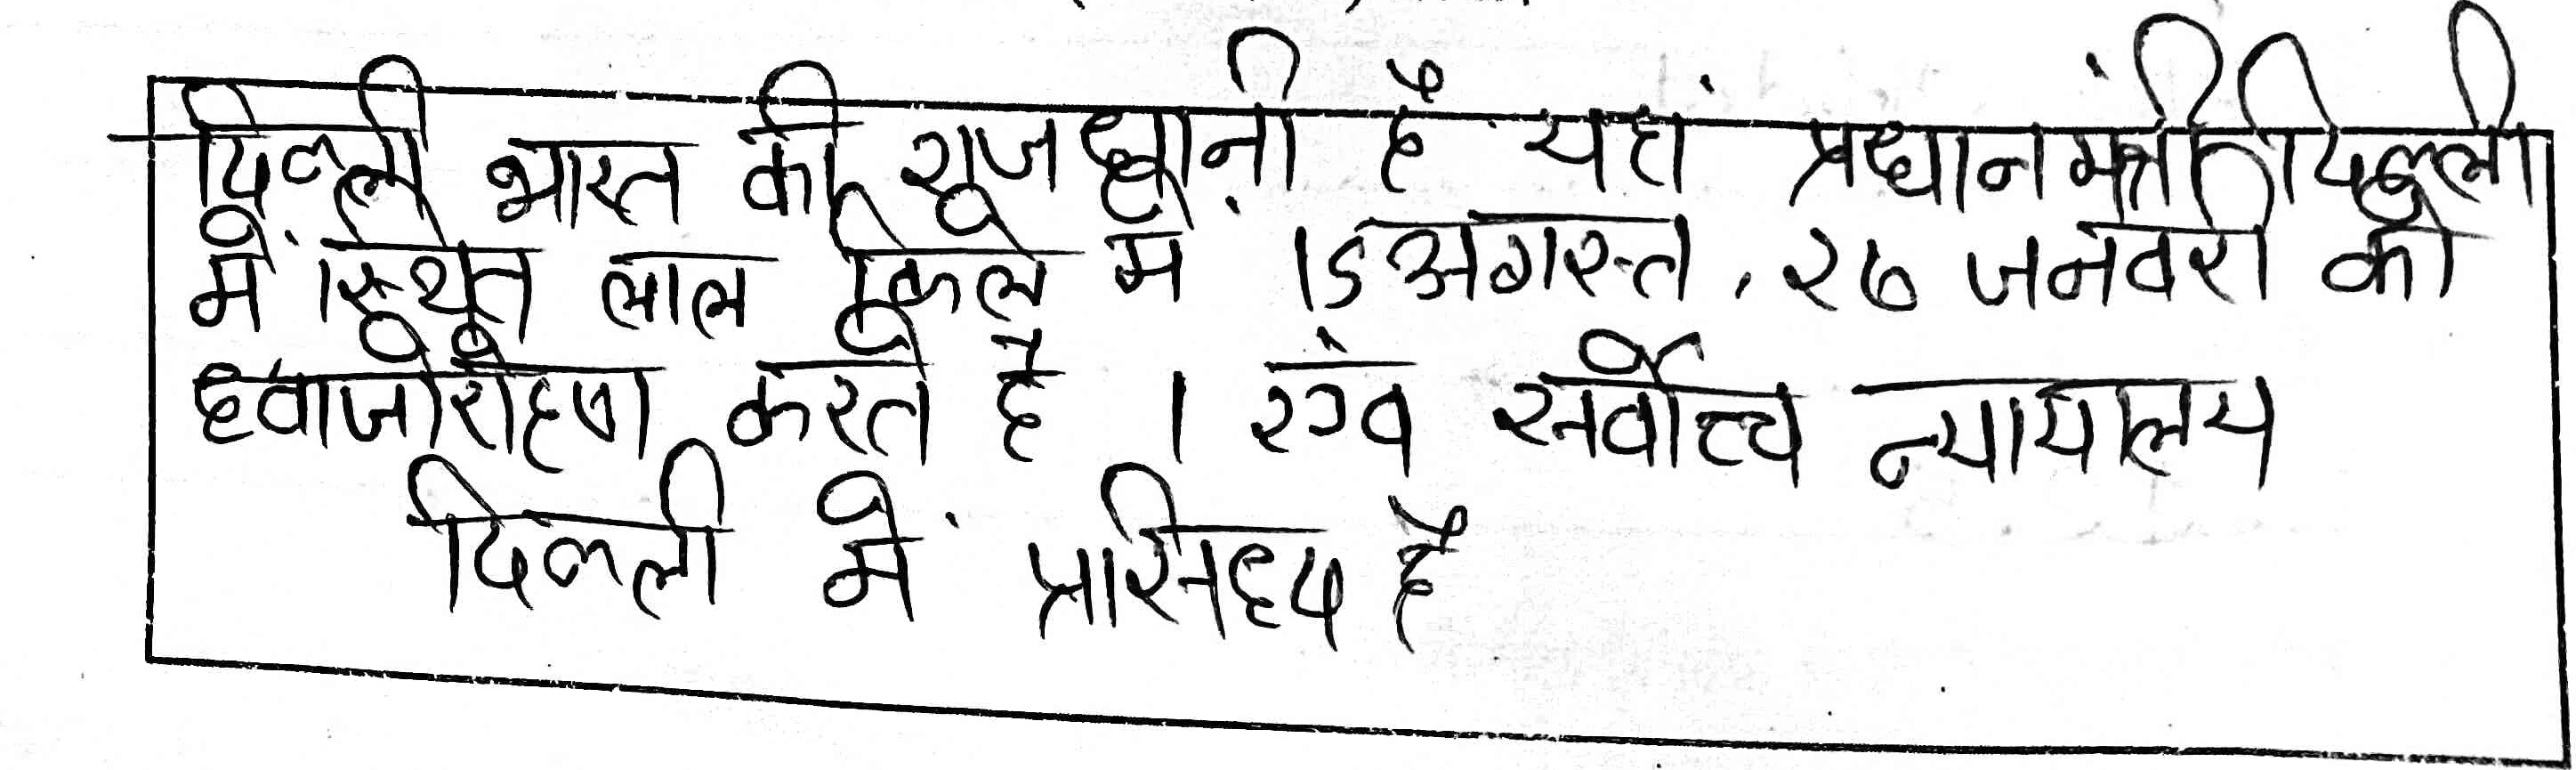 दिल्ली भारत की राजधानी है यहां प्रधानमंत्री दिल्ली
में स्थित लाल किले में 15 अगस्त, २७ जनवरी को
ध्वाजोरोहण करते है । एंव सर्वोच्च न्यायालय
दिल्ली में प्रसिध्द है